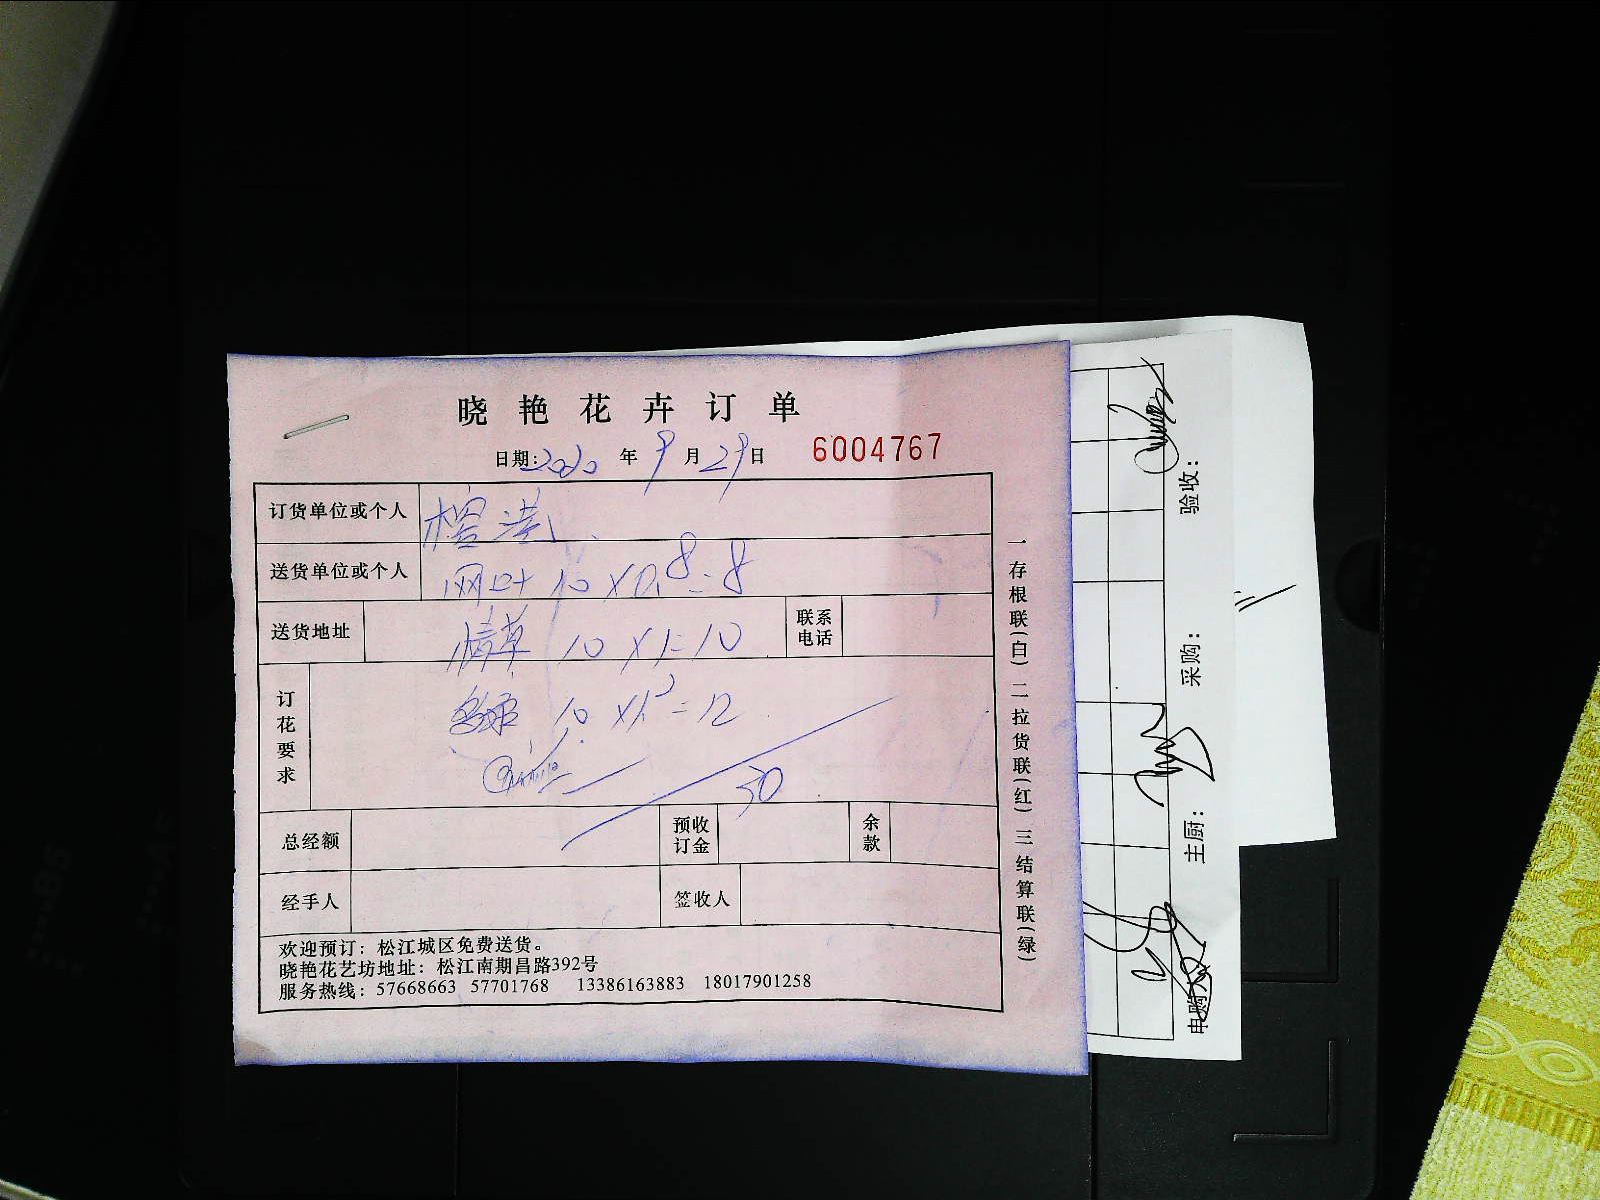 晓艳花卉订单
日期:2020年9月29日 6004767
订货单位或个人 榕港
送货单位或个人 网叶 10×0.8=8
送货地址 情草 10×1=10 联系电话
订花要求 10×1.2=12
30
总经额 预收订金 余款
经手人 签收人
欢迎预订：松江城区免费送货。
晓艳花艺坊地址：松江南期昌路392号
服务热线：57668663 57701768 13386163883 18017901258
一存根联(白)二拉货联(红)三结算联(绿)
验收：
采购：
主厨：
申购人